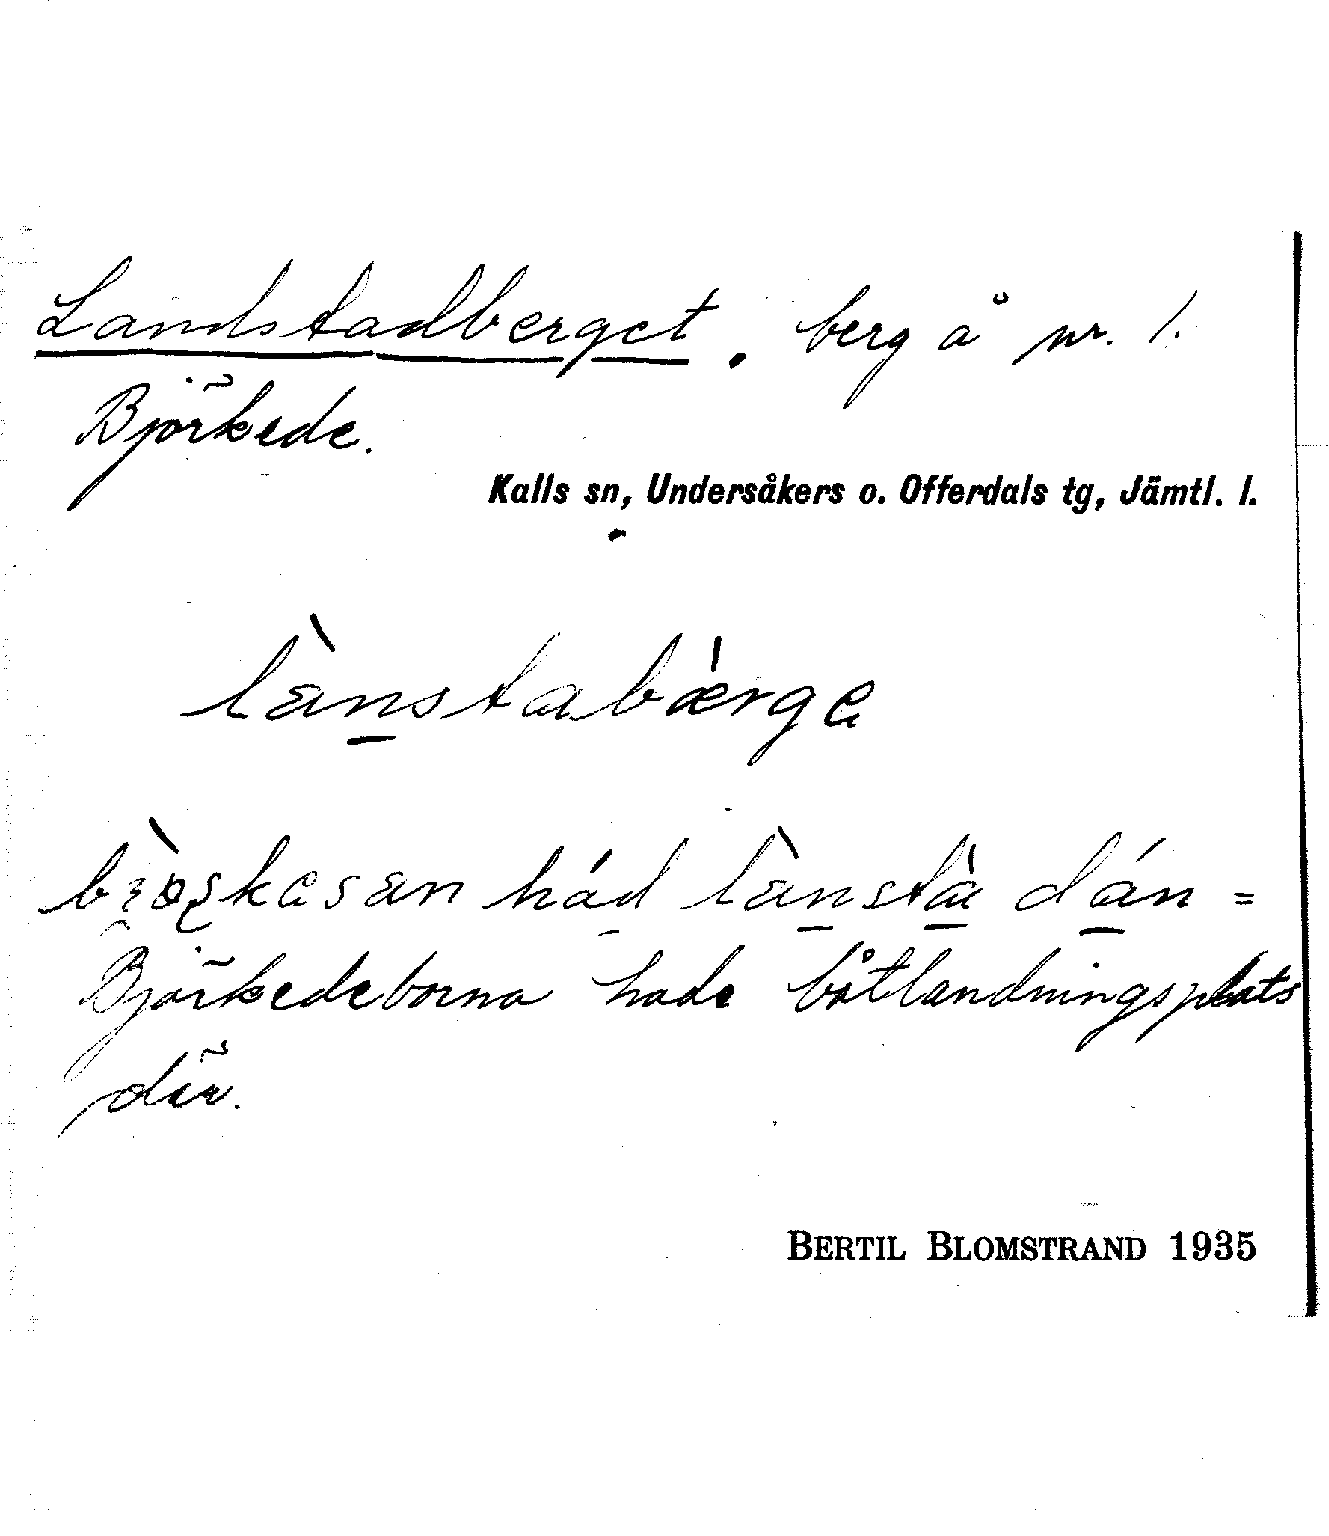 Landstadberget. berg å nr. 1.
Björkede.
Kalls sn, Undersåkers o. Offerdals tg, Jämtl. l.
lànstabærga
hád lànstà dán =
Björkedeborna hade båtlandningsplats
där.
BERTIL BLOMSTRAND 1935